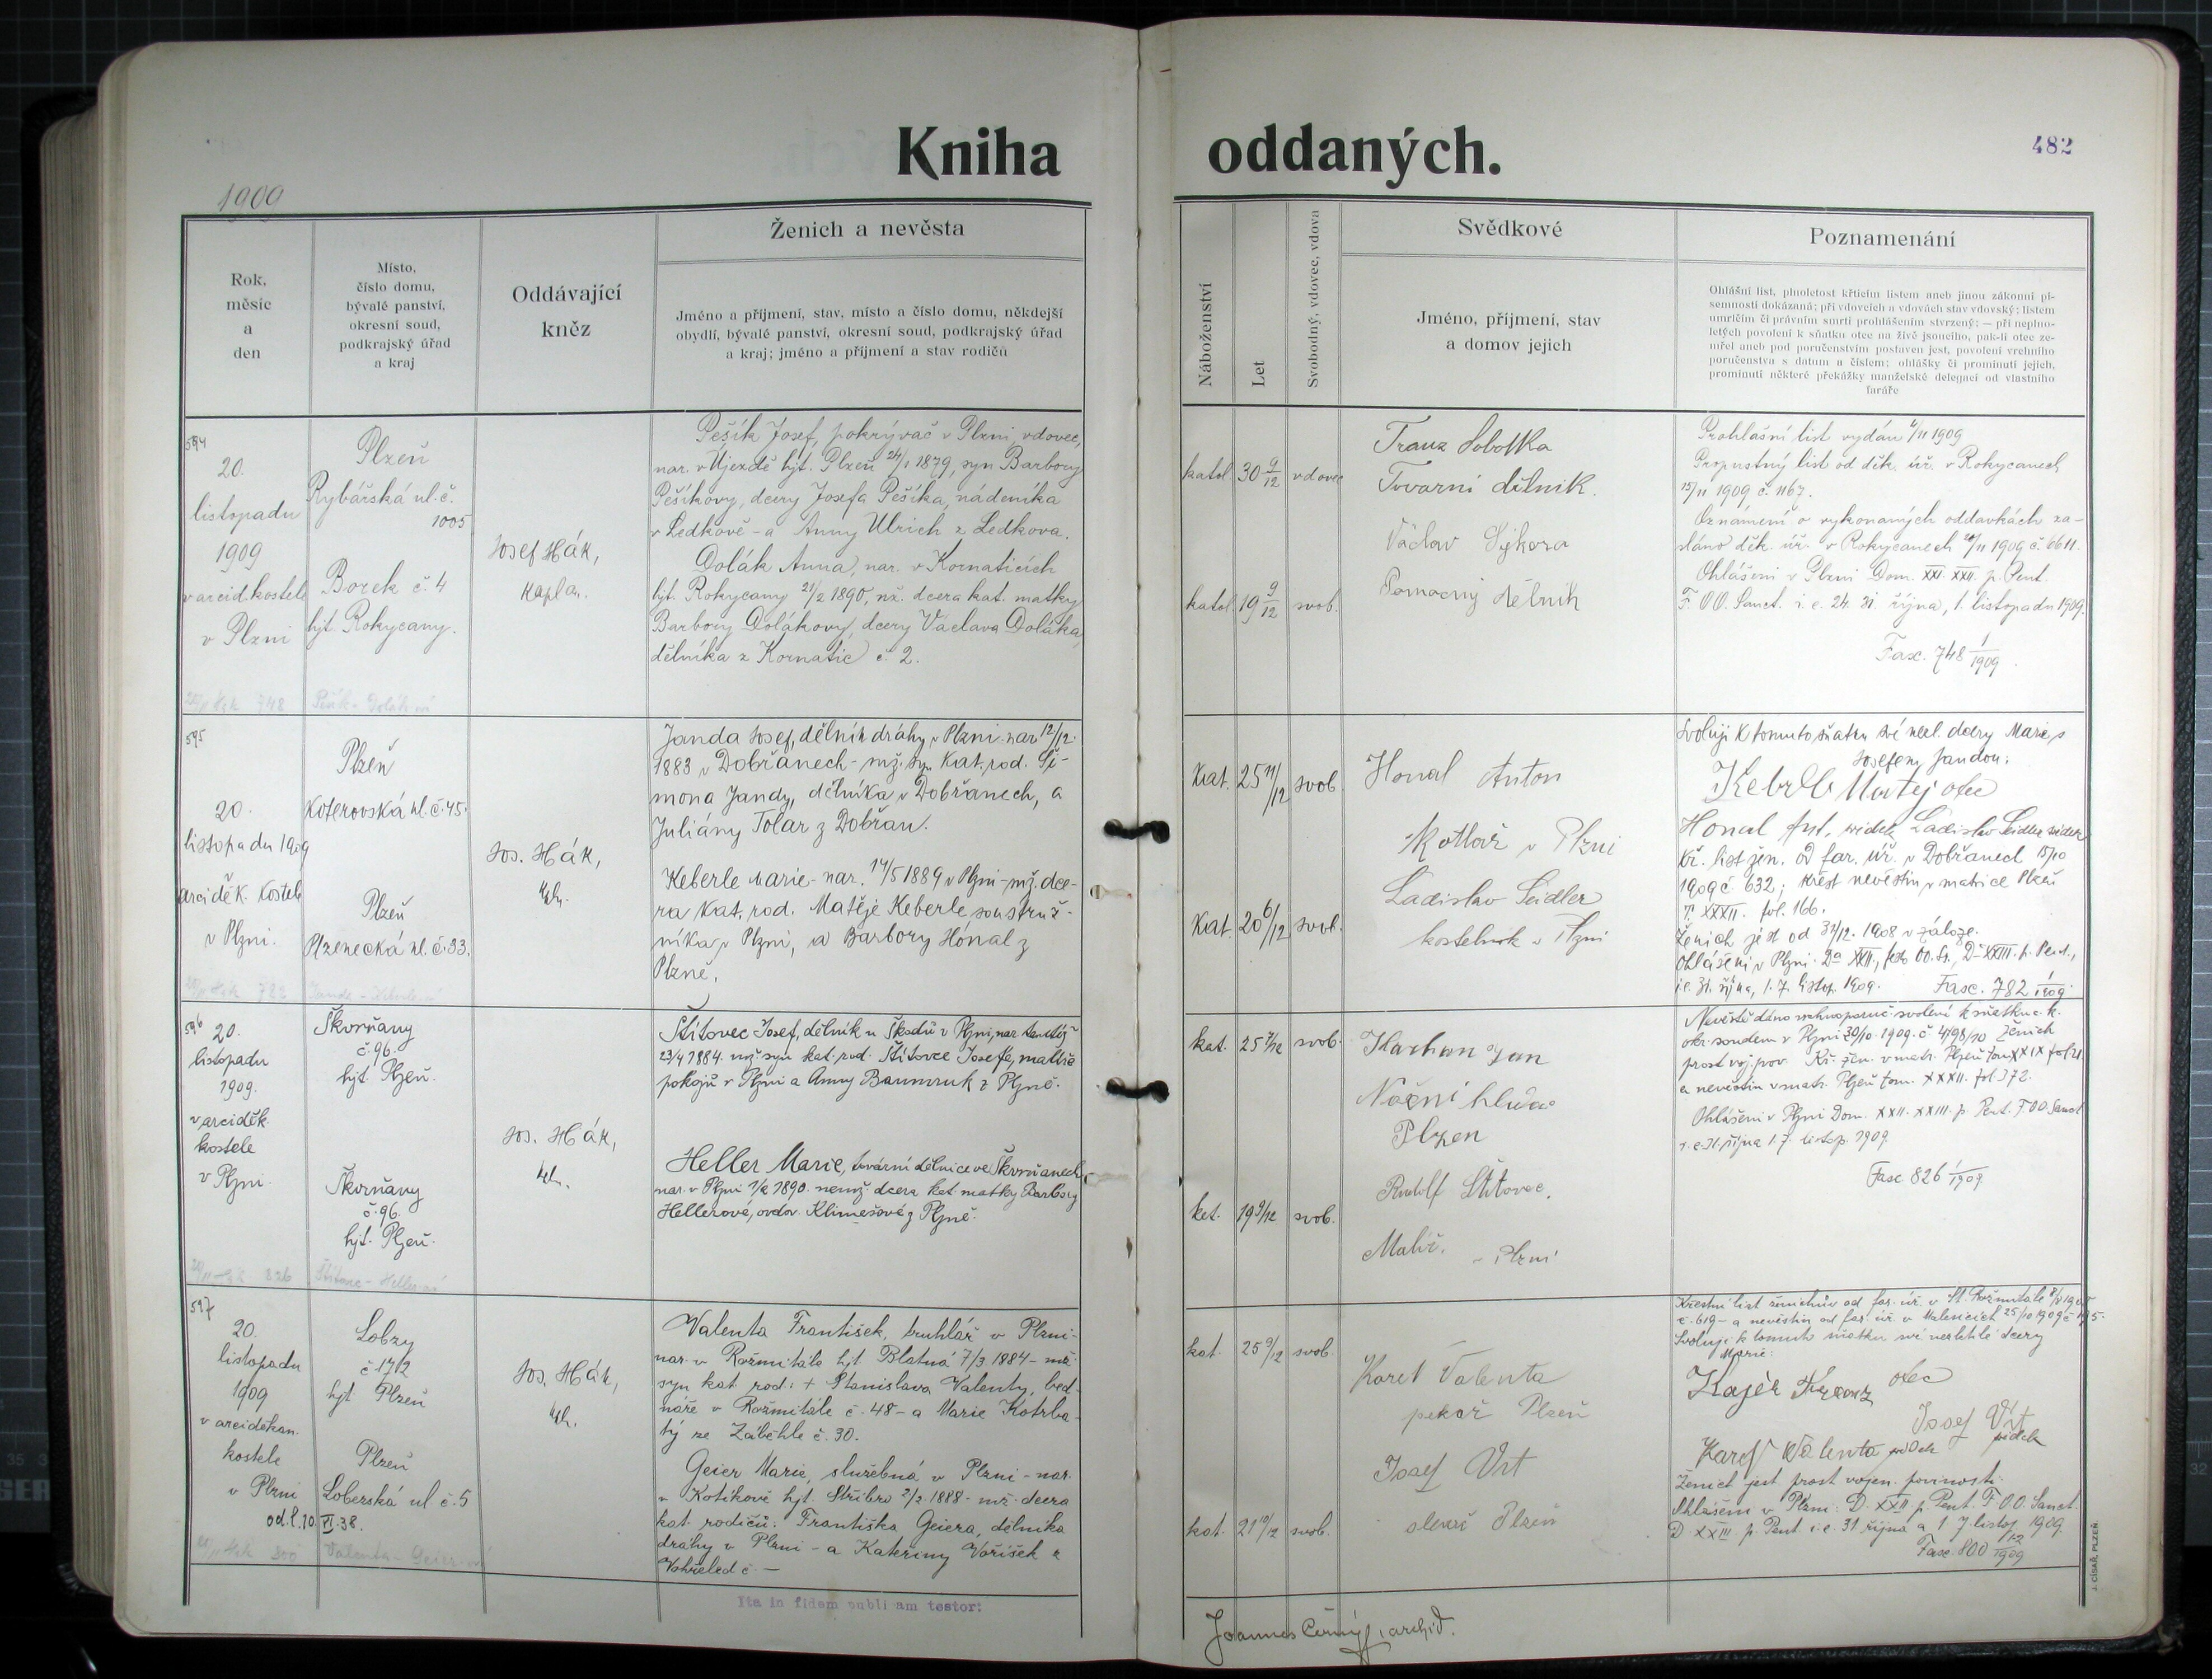 Kniha oddaných.
482
1909
Rok,
měsíc
a
den
Místo,
číslo domu,
bývalé panství,
okresní soud,
podkrajský úřad
a kraj
Oddávající
kněz
Ženich a nevěsta
Jméno a příjmení, stav, místo a číslo domu, někdejší
obydlí, bývalé panství, okresní soud, podkrajský úřad
a kraj; jméno a příjmení a stav rodičů
Náboženství
Let
Svobodný, vdovec, vdova
Svědkové
Jméno, příjmení, stav
a domov jejich
Poznamenání
Ohlášní list, plnoletost křticím listem aneb jinou zákonní pí-
semností dokázaná; při vdovcích a vdovách stav vdovský; listem
umrlčím či právním smrti prohlášením stvrzený; — při neplno-
letých povolení k sňatku otce na živě jsoucího, pak-li otec ze-
mřel aneb pod poručenstvím postaven jest, povolení vrchního
poručenstva s datum a číslem; ohlášky či prominutí jejich,
prominutí některé překážky manželské delegací od vlastního
faráře
594
20.
listopadu
1909
v arcid. kostele
v Plzni
Plzeň
Rybářská ul. č.
1005
Borek č. 4
hjt. Rokycany.
Josef Hák,
kapla.
Pešík Josef, pokrývač v Plzni, vdovec,
nar. v Újezdě hjt. Plzeň 24/1 1879, syn Barbory
Pešíkovy, dcery Josefa Pešíka, nádeníka
v Ledkově - a Anny Ulrich z Ledkova.
Dolák Anna, nar. v Kornaticích
hjt. Rokycany 21/2 1890, nž. dcera kat. matky
Barbory Dolákovy, dcery Václava Doláka,
dělníka z Kornatic č. 2.
katol. 30 9/12 vdovec
katol. 19 9/12 svob.
Franz Sobotka
Tovarni dělnik.
Václav Sýkora
Pomocný dělník
Prohlášní list vydán 4/11 1909
Propustný list od děk. úř. v Rokycanech
15/11 1909 č. 1167.
Oznámení o vykonaných oddavkách za-
sláno děk. úř. v Rokycanech 20/11 1909 č. 6611.
Ohlášeni v Plzni Dom. XXI. XXII. p. Pent.
F. OO. Sanct. i. e. 24. 31. října, 1. listopadu 1909.
Fasc. 748 1/1909.
595
20.
listopadu 1909
arciděk. kostele
v Plzni.
Plzeň
Koterovská ul. č. 45.
Plzeň
Plzenecká ul. č. 33.
Jos. Hák,
kpl.
Janda Josef, dělník dráhy v Plzni nar 12/12
1883 v Dobřanech - mž. syn kat. rod. Ši-
mona Jandy, dělníka v Dobřanech, a
Juliány Tolar z Dobřan.
Keberle Marie - nar. 14/5 1889 v Plzni - mž. dce-
ra kat. rod. Matěje Keberle soustruž-
níka v Plzni, a Barbory Hónal z
Plzně.
kat. 25 11/12 svob.
kat. 20 6/12 svob.
Honal Anton
Kotlář v Plzni
Ladislav Seidler
kostelník v Plzni
Svoluji k tomuto sňatku své nezl. dcery Marie s
Josefem Jandou:
Keberle Matej otec
Honal Ant. svědek Ladislav Seidler svědek
Kř. list žen. od far. úř. v Dobřanech 15/10
1909 č. 632; křest nevěstin v matrice Plzeň
T. XXXII. fol. 166.
Ženich jest od 31/12. 1908 v záloze.
Ohlášeni v Plzni. Da XXII., festo OO. SS., D. XXIII. p. Pent.,
i. e. 31. října, 1. 7. listop. 1909. Fasc. 782 1/1909.
596
20.
listopadu
1909.
v arciděk.
kostele
v Plzni.
Škvrňany
č. 96.
hjt. Plzeň.
Škvrňany
č. 96.
hjt. Plzeň.
Jos. Hák,
kpl.
Štítovec Josef, dělník u Škodů v Plzni, nar. tamtéž
23/4 1884. mž. syn kat. rod. Štítovce Josefa, malíře
pokojů v Plzni a Anny Baumruk z Plzně.
Heller Marie, tovární dělnice ve Škvrňanech,
nar. v Plzni 1/2 1890. nemž. dcera kat. matky Barbory
Hellerové, ovdov. Klimešové z Plzně.
kat. 25 7/12 svob.
kat. 19 9/12 svob.
Jan
Noční hlídač
Plzen
Rudolf Štítovec,
Malíř, v Plzni
Nevěstě dáno vrchnoporuč. svolení k sňatku c. k.
okr. soudem v Plzni 30/10. 1909. č 4798/10 Ženich
prost voj. pov. Kř. žen. v matr. Plzeň tom XXIX fol.
a nevěstin v matr. Plzeň tom. XXXII. fol 372.
Ohlášeni v Plzni Dom. XXII. XXIII. p. Pent. F. OO. Sanct
i. e. 31. října 1. 7. listop. 1909.
Fasc. 826 1/1909
597
20.
listopadu
1909
v arciděkan.
kostele
v Plzni
od. l. 10. VI. 38.
Lobzy
č 172
hjt Plzeň
Plzeň
Loberská ul č. 5
Valenta - Geierová
Jos. Hák,
kpl.
Valenta František, truhlář v Plzni -
nar. v Rožmitále hjt. Blatná 7/3 1884 - mž.
syn kat. rod.: + Stanislava Valenty, bed-
náře v Rožmitále č. 48 - a Marie Kotrba-
tý ze Záběhle č. 30.
Geier Marie, služebná v Plzni - nar.
v Kotíkově hjt. Stříbro 2/2 1888 - mž. dcera
kat. rodičů: Františka Geiera, dělníka
dráhy v Plzni - a Kateřiny Voříšek z
Vohřeled č. —
kat. 25 9/12 svob.
kat. 21 10/12 svob.
Karel Valenta
pekař Plzeň
Josef Vrt
Plzeň
Křestní list ženichův od far. úř. v St. Rožmitále
č. 619 - a nevěstin od far. úř. v 25/10 1909 č
Svoluji k tomuto sňatku své nezletilé dcery
Marie:
otec
Josef Vrt
svědek
Karel Valenta svědek
Ženich jest prost vojen. povinnosti.
Ohlášeni v Plzni: D. XXII p. Pent. F. O. O. Sanct.
D XXIII. p. Pent. i. e. 31 října a 1 7. listop. 1909.
Fasc. 800 1/2 1909
Ita in fidem publicam testor:
Joannes Černý, archid.
J. CÍSAŘ, PLZEŇ.